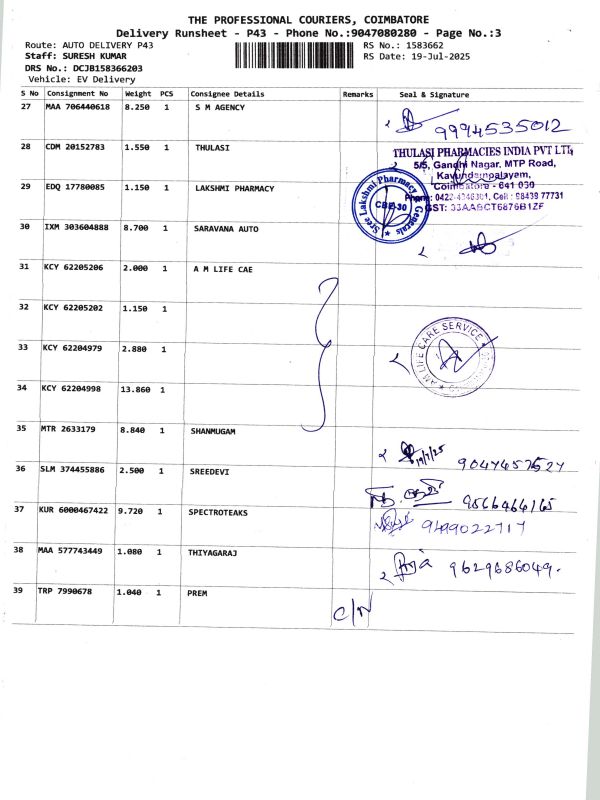 THE PROFESSIONAL COURIERS, COIMBATORE
Delivery Runsheet - P43 - Phone No.:9047080280 - Page No.:3
Route: AUTO DELIVERY P43 RS No.: 1583662
Staff: SURESH KUMAR RS Date: 19-Jul-2025
DRS No.: DCJB158366203
Vehicle: EV Delivery
S No Consignment No Weight PCS Consignee Details Remarks Seal & Signature
27 MAA 706440618 8.250 1 S M AGENCY
9994535012
28 CDM 20152783 1.550 1 THULASI
THULASI PHARMACIES INDIA PVT LTD.
5/5, Gandhi Nagar, MTP Road,
Kavundampalayam,
Coimbatore - 641 030
Phone: 0422-4346301, Cell : 98439 77731
GST: 33AABCT6876B1ZF
29 EDQ 17780085 1.150 1 LAKSHMI PHARMACY
Sree Lakshmi Pharmacy Generals
CBE-30
30 IXM 303604888 8.700 1 SARAVANA AUTO
31 KCY 62205206 2.000 1 A M LIFE CAE
32 KCY 62205202 1.150 1
33 KCY 62204979 2.880 1
AM LIFE CARE SERVICE
34 KCY 62204998 13.860 1
35 MTR 2633179 8.840 1 SHANMUGAM
19/7/25
9047457527
36 SLM 374455886 2.500 1 SREEDEVI
9566466165
37 KUR 6000467422 9.720 1 SPECTROTEAKS
9499022717
38 MAA 577743449 1.080 1 THIYAGARAJ
9629686049.
39 TRP 7990678 1.040 1 PREM
C/N